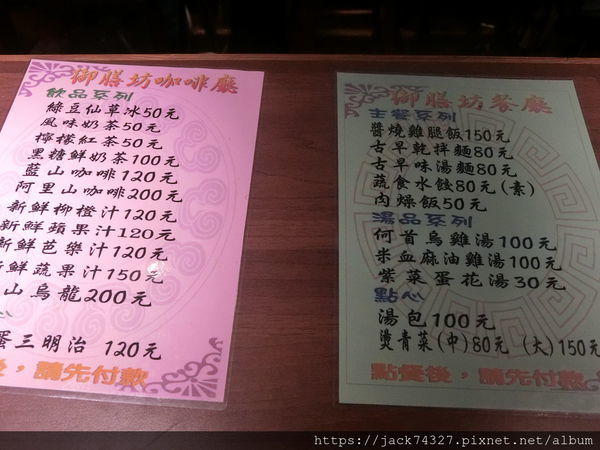 御膳坊咖啡廳
飲品系列
綠豆仙草冰50元
風味奶茶50元
檸檬紅茶50元
黑糖鮮奶茶100元
藍山咖啡120元
阿里山咖啡200元
新鮮柳橙汁120元
新鮮蘋果汁120元
新鮮芭樂汁120元
新鮮蔬果汁150元
山烏龍200元
心
蛋三明治 120元
後，請先付款
御膳坊餐廳
主餐系列
醬燒雞腿飯150元
古早乾拌麵80元
古早味湯麵80元
蔬食水餃80元(素)
肉燥飯50元
湯品系列
何首烏雞湯100元
米血麻油雞湯100元
紫菜蛋花湯30元
點心
湯包100元
燙青菜(中)80元 (大)150元
點餐後，請先付款
https://jack74327.pixnet.net/album